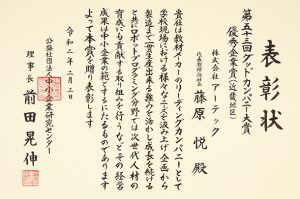 表彰状
第五十三回グッドカンパニー大賞
優秀企業賞(近畿地区)
株式会社 アーテック
代表取締役社長
藤原 悦 殿
貴社は教材メーカーのリーディングカンパニーとして
学校現場における様々な工夫を汲み上げ企画から
製造まで一貫生産出来る強みを活かし成長を続ける
と共にロボットプログラミング分野では次世代人材の
育成にも貢献する取り組みを行うなどその経営
成果は中小企業の範とするにたるものであります
よって本賞を贈り表彰します
令和二年二月三日
公益社団法人中小企業研究センター
理事長 前田晃伸